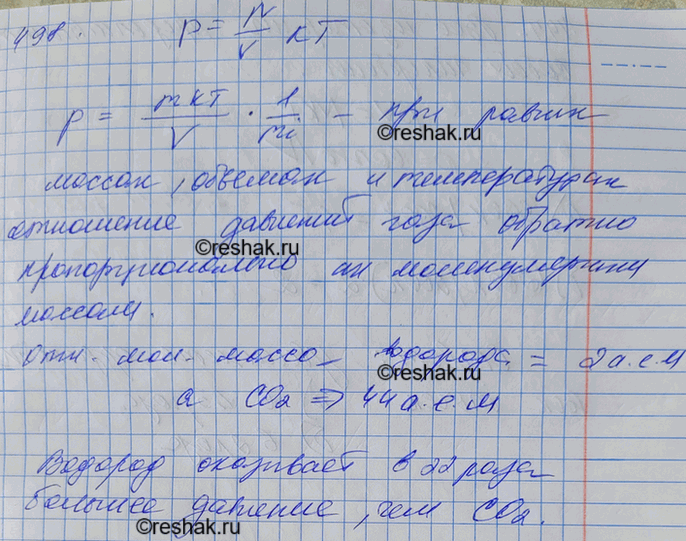 498. p = N/V kT
p = mkT/V · 1/mi – при равных
массах, объемах и температурах
отношение давлений газа обратно
пропорционально их молекулярным
массам.
Отн. мол. масса – водорода = 2 а.е.м
а CO₂ ⇒ 44 а.е.м
Водород оказывает в 22 раза
большее давление, чем CO₂.
©reshak.ru
©reshak.ru
©reshak.ru
©reshak.ru